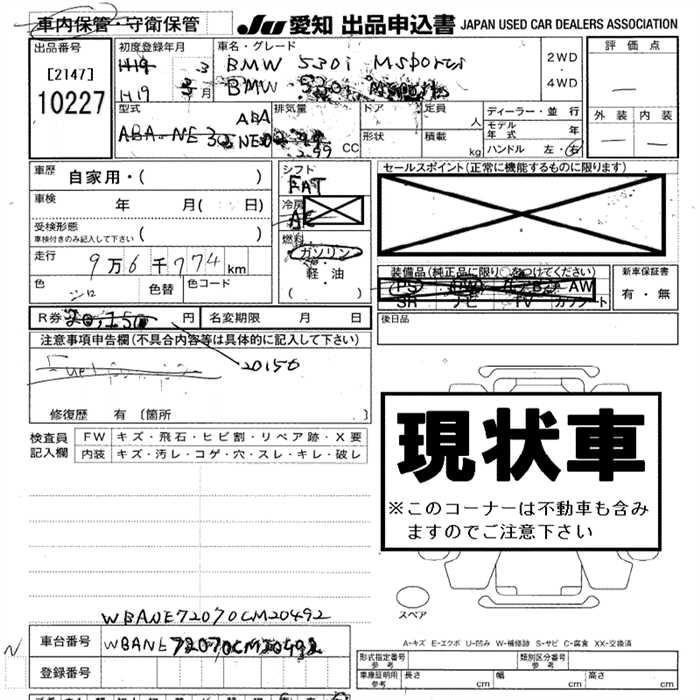 車内保管・守衛保管
JU 愛知 出品申込書 JAPAN USED CAR DEALERS ASSOCIATION
出品番号
[2147]
10227
初度登録年月
H19 3
H.19 3月
車名・グレード
BMW 530i Msports
BMW 530i Msports
2WD
4WD
評価点
外装 内装
型式
ABA
ABA-NE30
排気量
2.99 CC
ドア
定員 人
形状
積載 kg
ディーラー・並行
モデル年式 年
ハンドル 左・右
車歴 自家用・( )
車検 年 月( 日)
受検形態
車検付きのみ記入して下さい ( )
走行 9万6千774km
色 シロ 色替 色コード
シフト
FAT
冷房
AC
燃料
ガソリン
軽・油
( )
セールスポイント(正常に機能するものに限ります)
装備品(純正品に限り○をつけてください)
PS PW AW
SR ナビ TV カワシート
新車保証書
有・無
R券 20,150円 名変期限 月 日
後日品
注意事項申告欄(不具合内容等は具体的に記入して下さい)
20150
修復歴 有〔箇所 〕
検査員記入欄
FW キズ・飛石・ヒビ割・リペア跡・X要
内装 キズ・汚レ・コゲ・穴・スレ・キレ・破レ
現状車
※このコーナーは不動車も含み
ますのでご注意下さい
スペア
WBANE72070CM20492
N 車台番号 WBANE72070CM20492
登録番号
A-キズ E-エクボ U-凹み W-補修跡 S-サビ C-腐食 XX-交換済
形式指定番号 参考
類別区分番号 参考
車庫証明用 参考
長さ cm 幅 cm 高さ cm